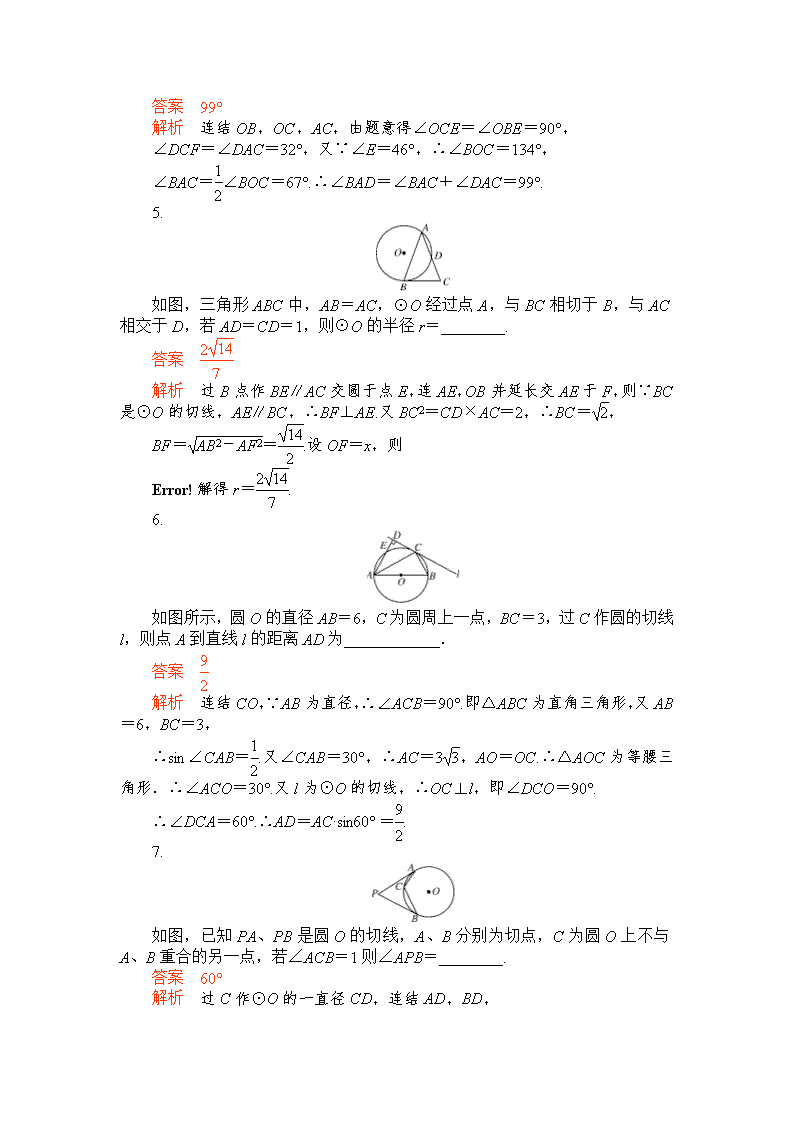 答案　99°
解析　连结OB，OC，AC，由题意得∠OCE＝∠OBE＝90°，
∠DCF＝∠DAC＝32°，又∵∠E＝46°，∴∠BOC＝134°，
∠BAC＝1/2∠BOC＝67°.∴∠BAD＝∠BAC＋∠DAC＝99°.
5.
A
O
D
B
C
如图，三角形ABC中，AB＝AC，⊙O经过点A，与BC相切于B，与AC
相交于D，若AD＝CD＝1，则⊙O的半径r＝________.
答案　2√14/7
解析　过B点作BE∥AC交圆于点E，连AE，OB并延长交AE于F，则∵BC
是⊙O的切线，AE∥BC，∴BF⊥AE.又BC²＝CD×AC＝2，∴BC＝√2，
BF＝√(AB²－AF²)＝√14/2.设OF＝x，则
Error! 解得r＝2√14/7.
6.
D
E
C
A
O
B
l
如图所示，圆O的直径AB＝6，C为圆周上一点，BC＝3，过C作圆的切线
l，则点A到直线l的距离AD为____________．
答案　9/2
解析　连结CO，∵AB为直径，∴∠ACB＝90°.即△ABC为直角三角形，又AB
＝6，BC＝3，
∴sin ∠CAB＝1/2.又∠CAB＝30°，∴AC＝3√3，AO＝OC.∴△AOC为等腰三
角形．∴∠ACO＝30°.又l为⊙O的切线，∴OC⊥l，即∠DCO＝90°.
∴∠DCA＝60°.∴AD＝AC·sin60°＝9/2.
7.
A
C
P
O
B
如图，已知PA、PB是圆O的切线，A、B分别为切点，C为圆O上不与
A、B重合的另一点，若∠ACB＝1则∠APB＝________.
答案　60°
解析　过C作⊙O的一直径CD，连结AD，BD，